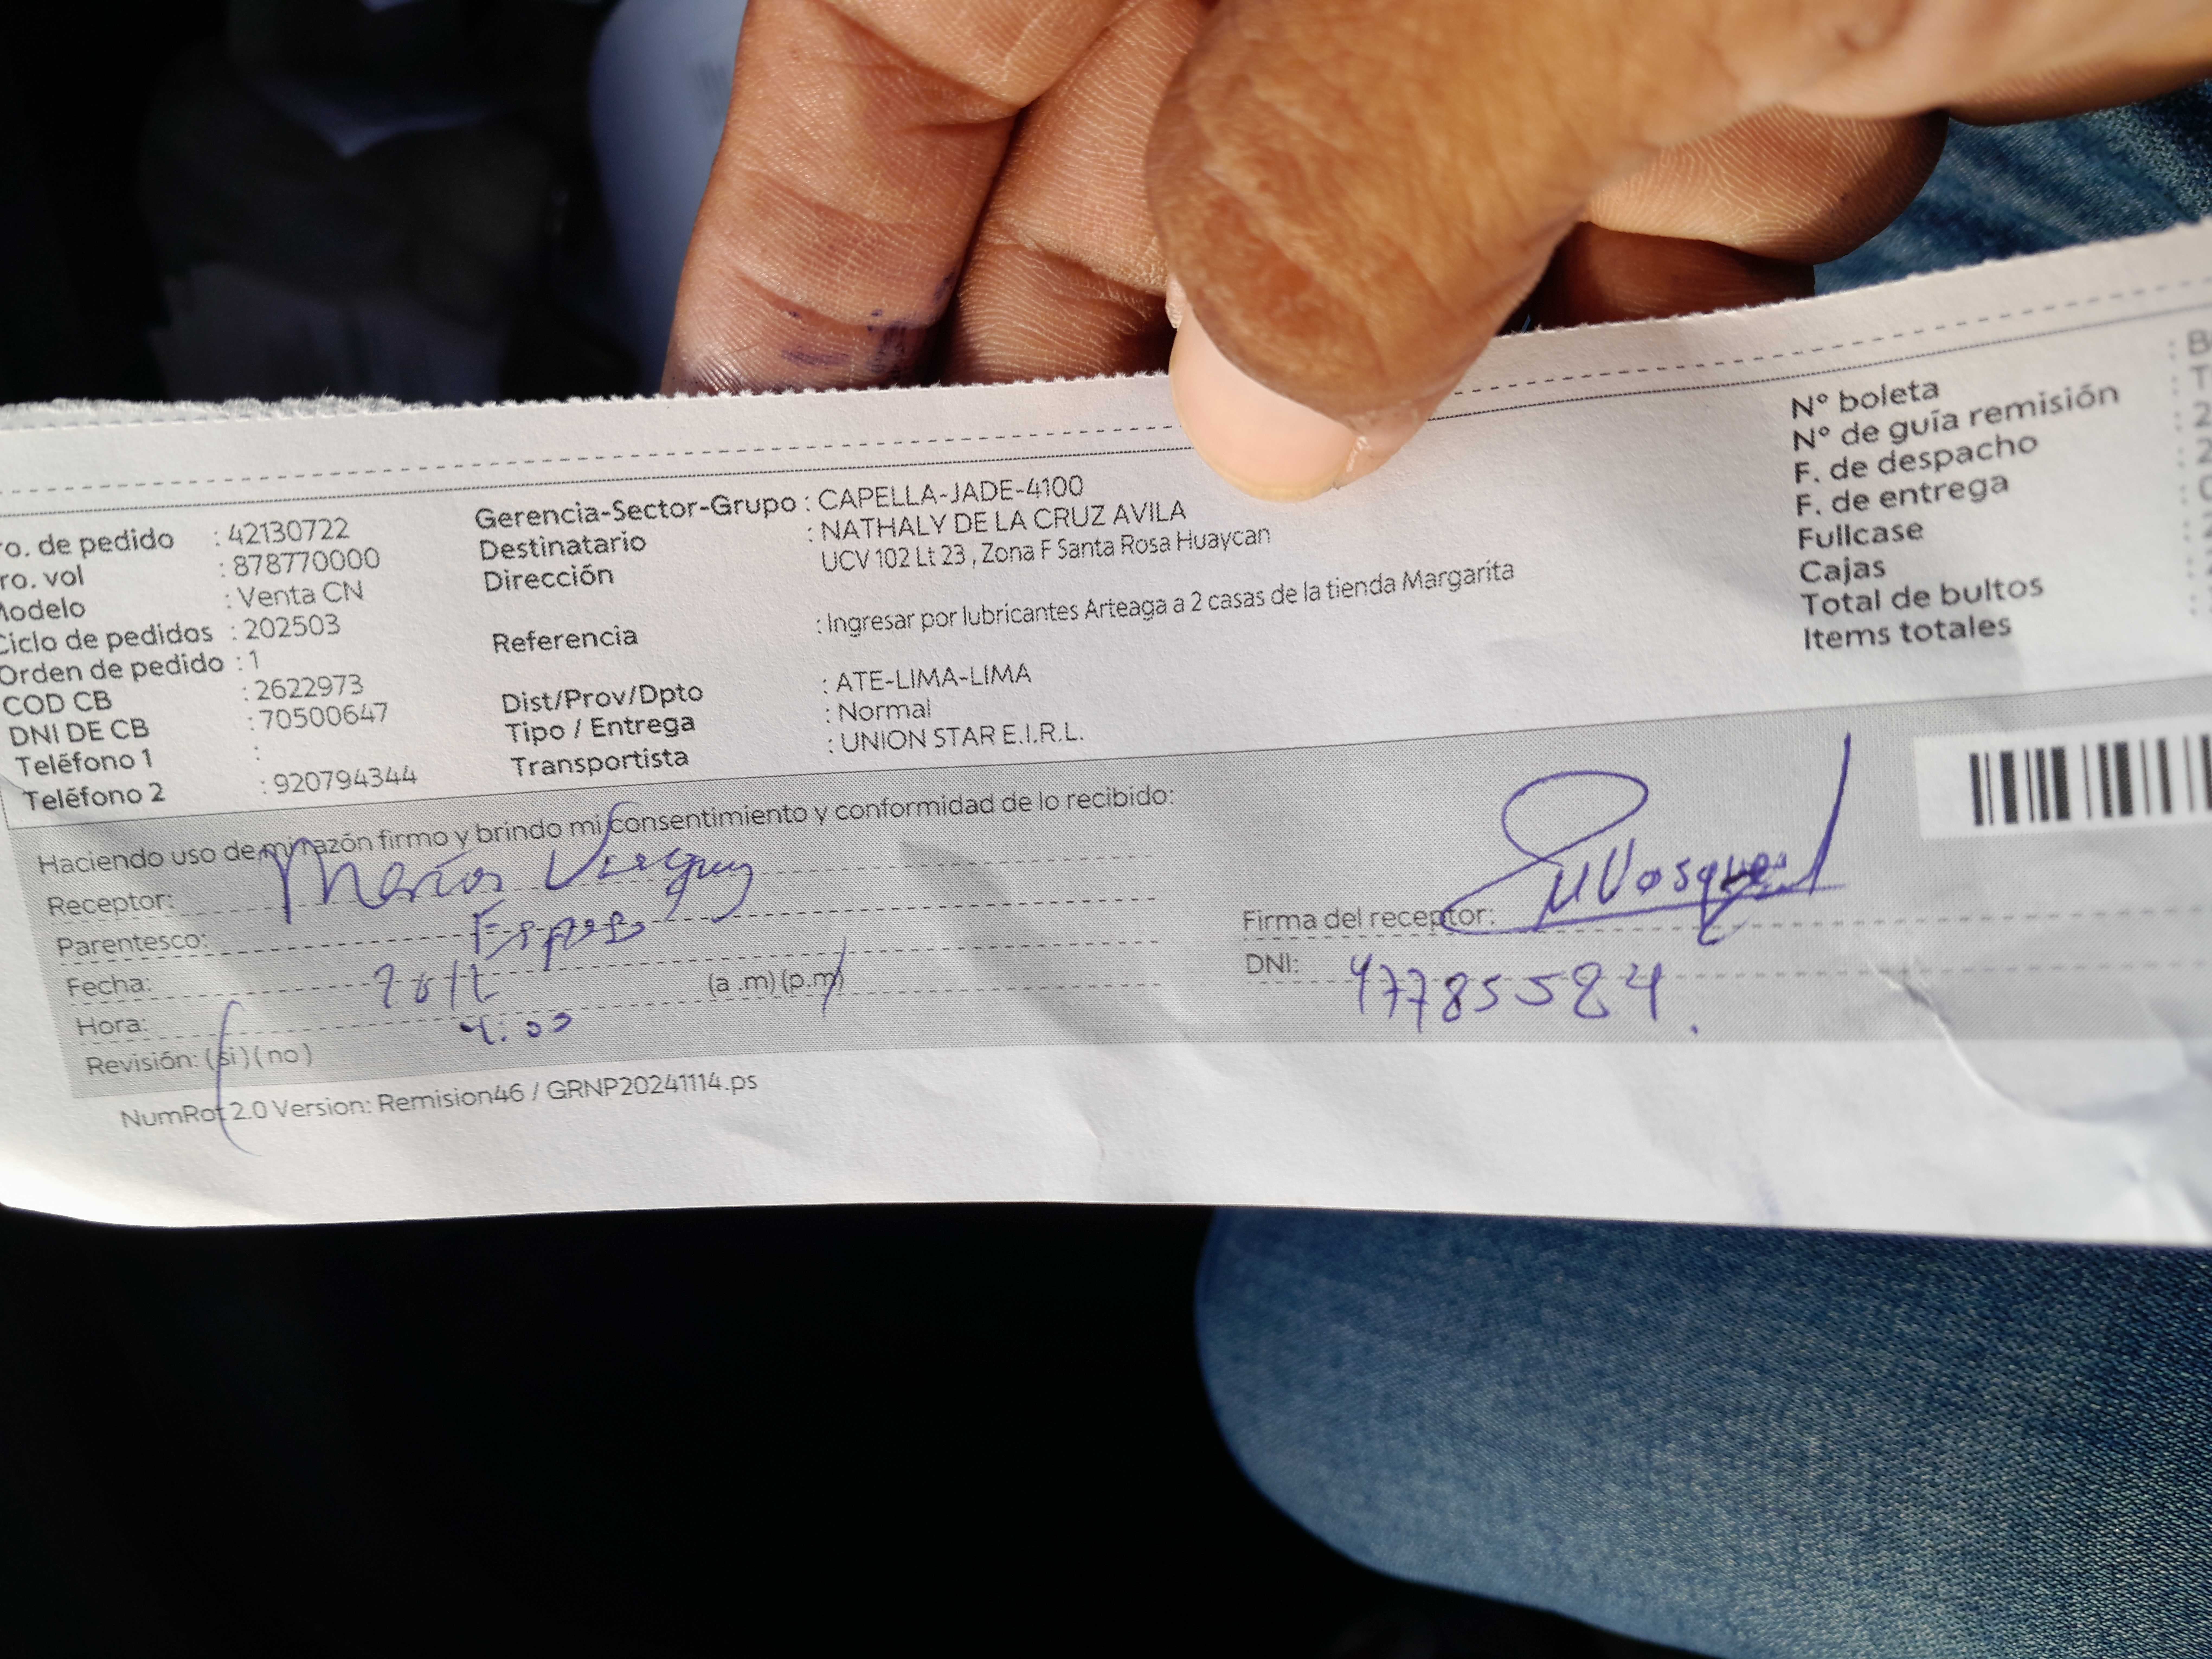 ro. de pedido : 42130722
ro. vol : 878770000
Modelo : Venta CN
Ciclo de pedidos : 202503
Orden de pedido : 1
COD CB : 2622973
DNI DE CB : 70500647
Teléfono 1 :
Teléfono 2 : 920794344
Gerencia-Sector-Grupo : CAPELLA-JADE-4100
Destinatario : NATHALY DE LA CRUZ AVILA
Dirección UCV 102 Lt 23 , Zona F Santa Rosa Huaycan
Referencia : Ingresar por lubricantes Arteaga a 2 casas de la tienda Margarita
Dist/Prov/Dpto : ATE-LIMA-LIMA
Tipo / Entrega : Normal
Transportista : UNION STAR E.I.R.L.
N° boleta : B
N° de guía remisión : T
F. de despacho : 2
F. de entrega : 2
Fullcase
Cajas
Total de bultos
Items totales
Haciendo uso de mi razón firmo y brindo mi consentimiento y conformidad de lo recibido:
Receptor:
Parentesco: Esposo
Fecha:
Hora: 4:00 (a .m) (p.m)
Revisión: (si) (no)
Firma del receptor:
DNI: 47785584.
NumRot 2.0 Version: Remision46 / GRNP20241114.ps